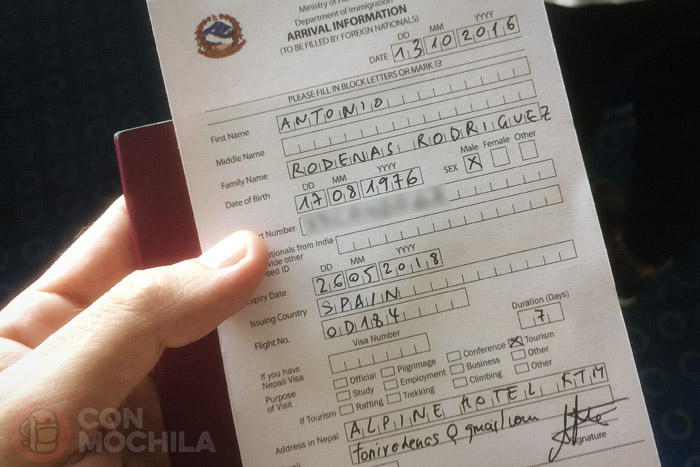 Department of Immigration
ARRIVAL INFORMATION
(TO BE FILLED BY FOREIGN NATIONALS)
DD MM YYYY
DATE 13 10 2016
PLEASE FILL IN BLOCK LETTERS OR MARK ☒
First Name ANTONIO
Middle Name
Family Name RODENAS RODRIGUEZ
DD MM YYYY
Date of Birth 17 08 1976 SEX Male ☒ Female ☐ Other ☐
Number
from India
other
ID
DD MM YYYY
Expiry Date 26 05 2018
Issuing Country SPAIN
Flight No. OD184
Visa Number
Duration (Days)
7
If you have
Nepali Visa
Purpose
of Visit
☐ Official ☐ Pilgrimage ☐ Conference ☒ Tourism
☐ Study ☐ Employment ☐ Business ☐ Other
If Tourism ☐ Rafting ☐ Trekking ☐ Climbing ☐ Other
Address in Nepal ALPINE HOTEL KTM
Signature
CON
MOCHILA